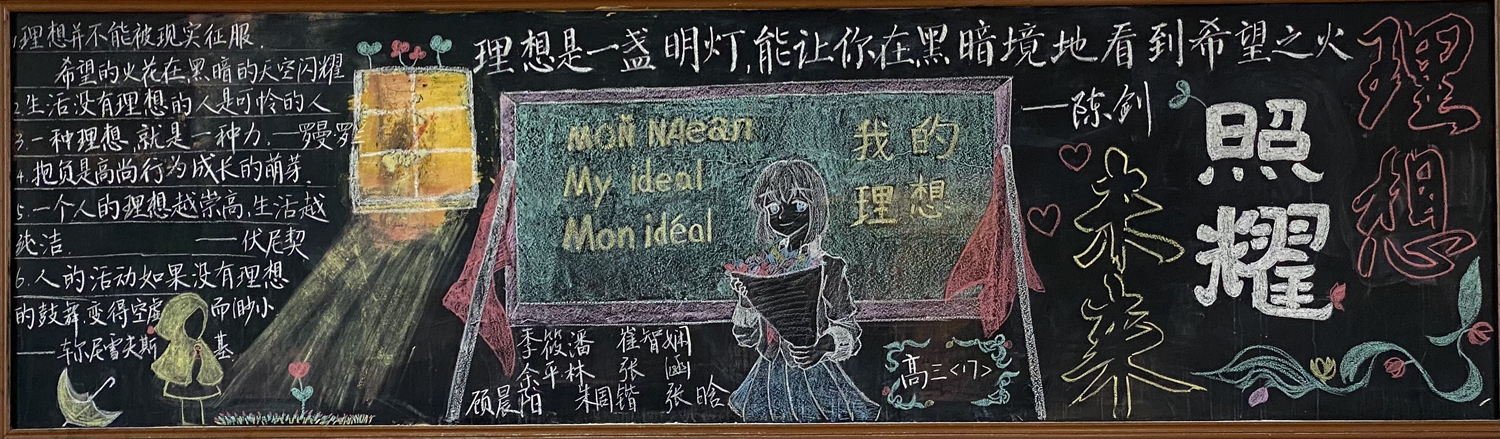 1.理想并不能被现实征服.
希望的火花在黑暗的天空闪耀
2.生活没有理想的人是可怜的人
3.一种理想,就是一种力.—罗曼罗
4.抱负是高尚行为成长的萌芽.
5.一个人的理想越崇高,生活越
纯洁. ——伏尼契
6.人的活动如果没有理想
的鼓舞,变得空虚 而渺小
——车尔尼雪夫斯 基
理想是一盏明灯,能让你在黑暗境地看到希望之火
—陈剑
мой идеал
My ideal
Mon idéal
我的
理想
季筱潘 崔智娴
余平林 张 涵
顾晨阳 朱周锴 张晗
高三<17>
理想
照耀
未来